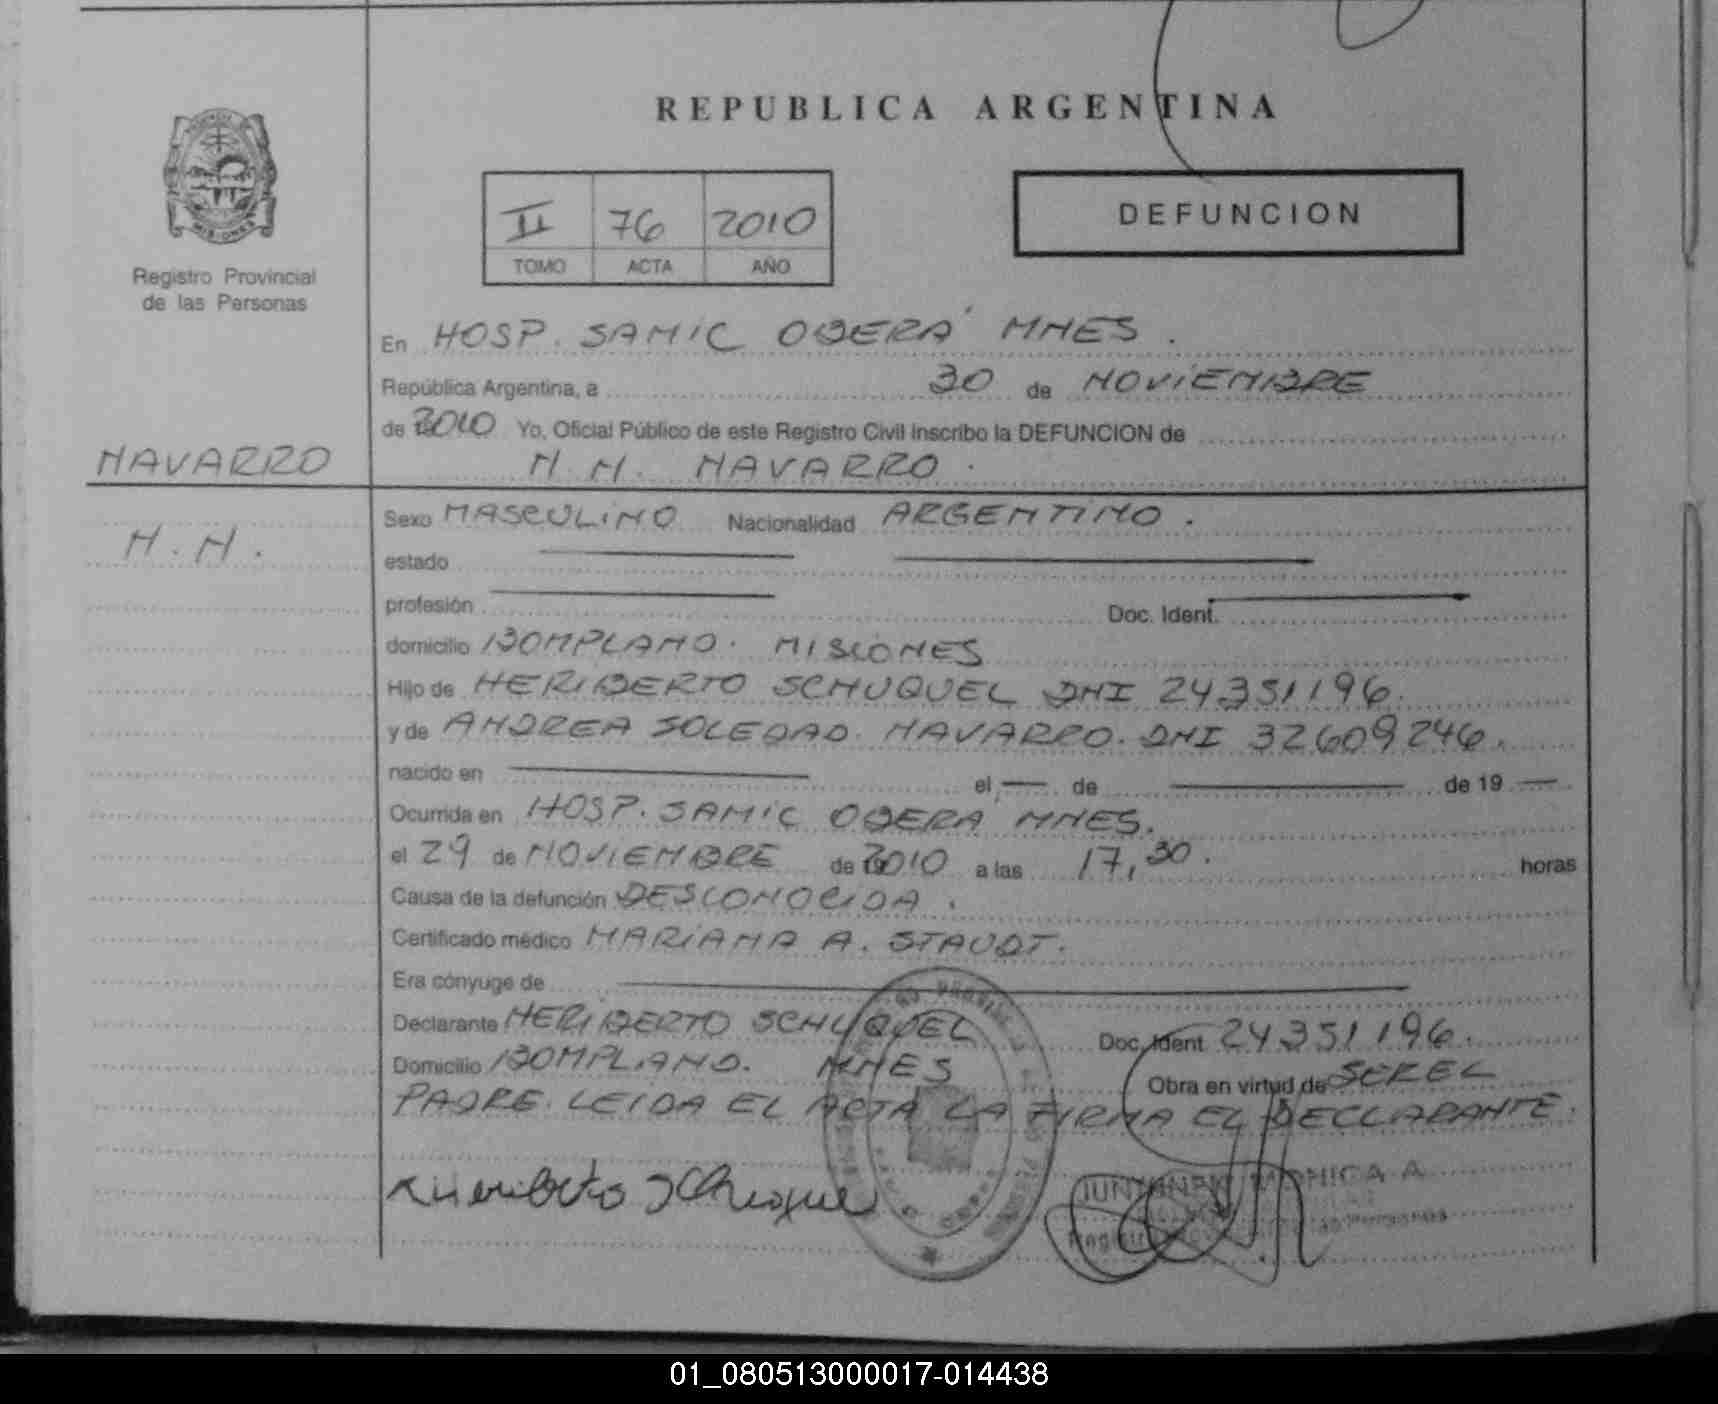 REPUBLICA ARGENTINA
MISIONES
Registro Provincial
de las Personas
II 76 2010
TOMO ACTA AÑO
DEFUNCION
En HOSP. SAMIC OBERÁ MNES.
República Argentina, a 30 de NOVIEMBRE
de 2010 Yo, Oficial Público de este Registro Civil inscribo la DEFUNCION de
NAVARRO
N. N. NAVARRO.
N. N.
Sexo MASCULINO Nacionalidad ARGENTINO.
estado
profesión Doc. Ident.
domicilio BOMPLAND. MISIONES
Hijo de HERIBERTO SCHUQUEL DNI 24351196.
y de ANDREA SOLEDAD. NAVARRO. DNI 32609246.
nacido en el de de 19
Ocurrida en HOSP. SAMIC OBERA MNES.
el 29 de NOVIEMBRE de 2010 a las 17,30. horas
Causa de la defunción DESCONOCIDA.
Certificado médico MARIANA A. STAUDT.
Era cónyuge de
Declarante HERIBERTO SCHUQUEL Doc. Ident 24351196.
Domicilio BOMPLAND. MNES Obra en virtud de SEREL
PADRE. LEIDA EL ACTA LA FIRMA EL DECLARANTE.
MONICA A
01_080513000017-014438